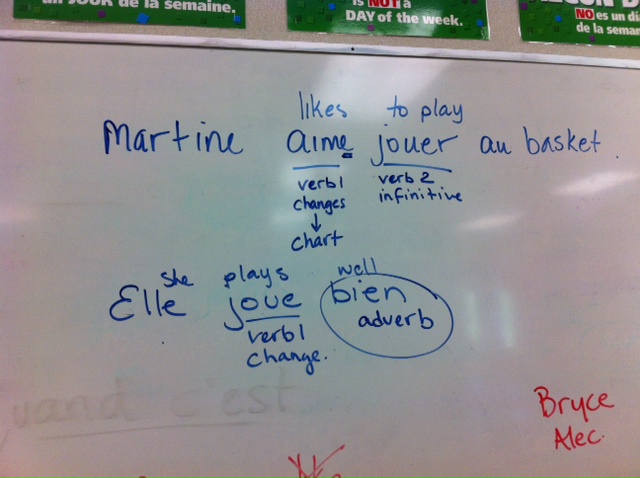 un JOUR de la semaine.
is NOT a
DAY of the week.
NO es un
de la seman
likes to play
Martine aime jouer au basket.
verb1 verb 2
changes infinitive
↓
chart
she plays well
Elle joue bien
verb1 adverb
change.
uand c'est
Bryce
Alec.